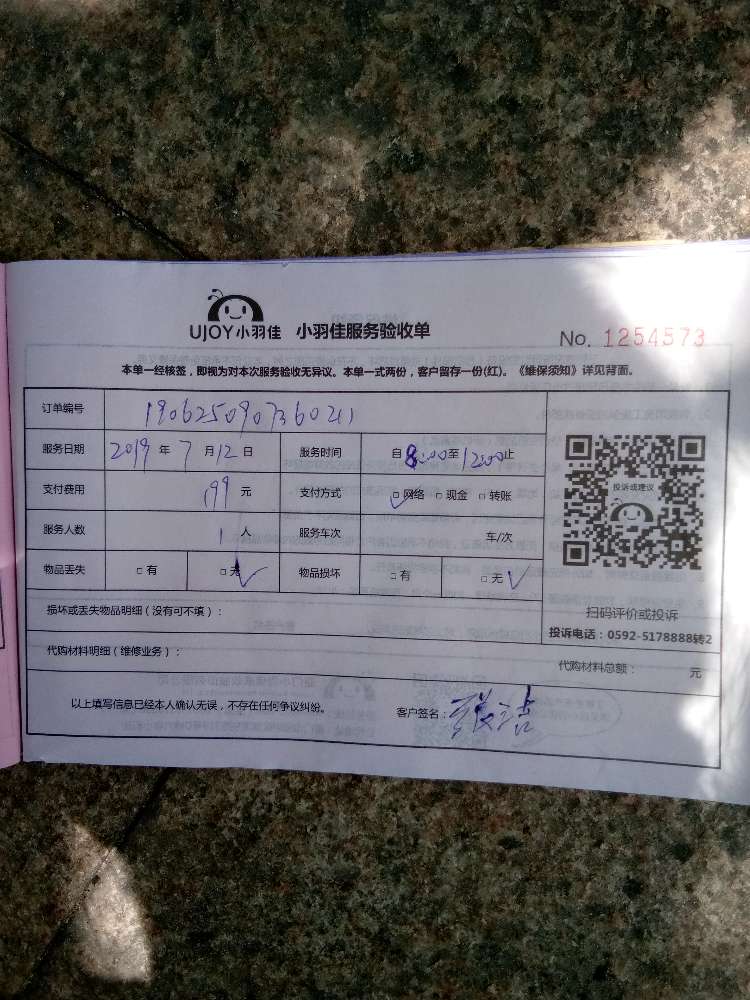 UJOY小羽佳 小羽佳服务验收单
No. 1254573
本单一经核签，即视为对本次服务验收无异议。本单一式两份，客户留存一份(红)。《维保须知》详见背面。
订单编号 190625090736021
服务日期 2019 年 7 月 12 日 服务时间 自 8:00 至 12:00 止
支付费用 199 元 支付方式 □网络 □现金 □转账
服务人数 1 人 服务车次 车/次
物品丢失 □有 □无 物品损坏 □有 □无
损坏或丢失物品明细（没有可不填）：
投诉或建议
扫码评价或投诉
投诉电话：0592-5178888转2
代购材料明细（维修业务）：
代购材料总额： 元
以上填写信息已经本人确认无误，不存在任何争议纠纷。 客户签名：